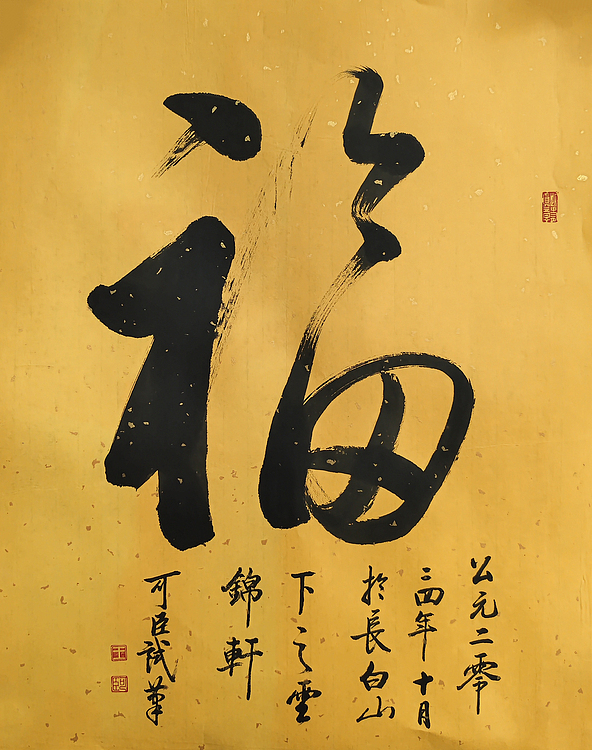 福
公元二零
二四年十月
於長白山
下之雲
錦軒
可臣試筆